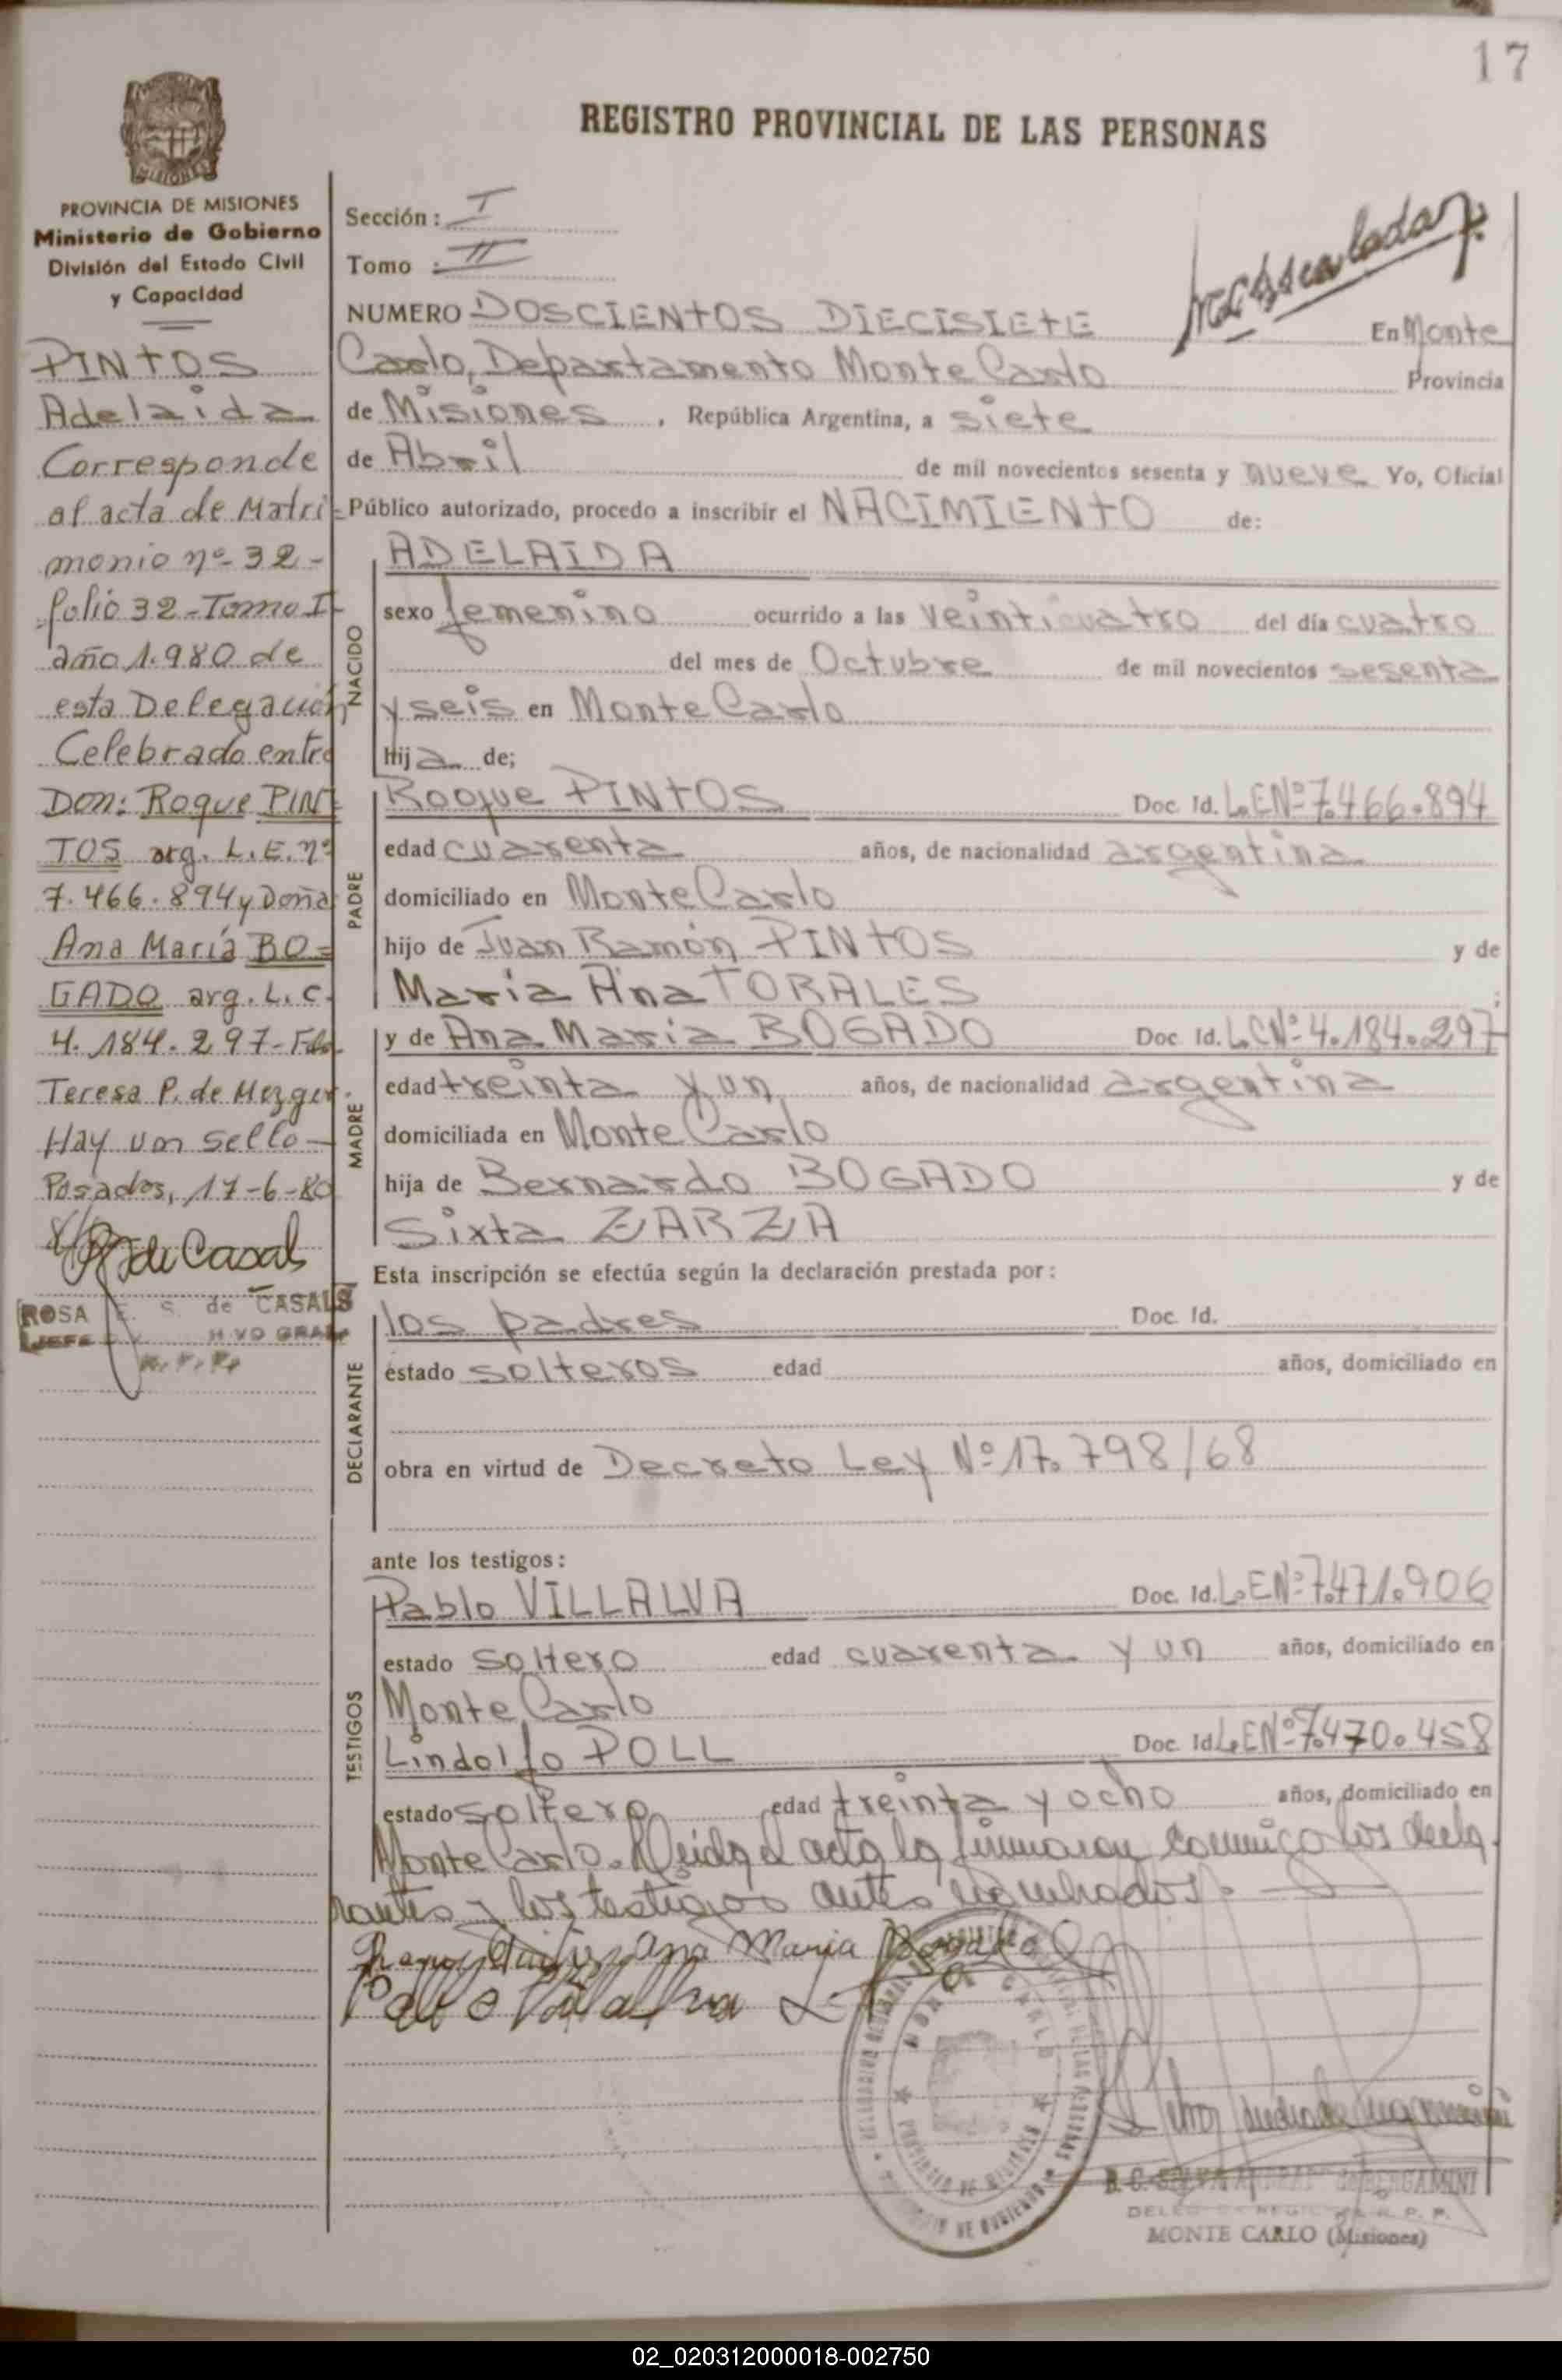 17
REGISTRO PROVINCIAL DE LAS PERSONAS
MISIONES
PROVINCIA DE MISIONES
Ministerio de Gobierno
División del Estado Civil
y Capacidad
PINTOS
Adelaida
Corresponde
al acta de Matri-
monio nº 32-
folio 32-Tomo I-
año 1.980 de
esta Delegación
Celebrado entre
Don: Roque PIN
TOS arg. L.E. nº
7.466.894 y Doña
Ana María BO=
GADO arg. L.C.
4.184.297-Fdo.
Teresa P. de Mezger.
Hay un sello-
Posadas, 17-6-80
de Casals
ROSA E. S. de CASALS
JEFE
Sección: I
Tomo : II
NUMERO DOSCIENTOS DIECISIETE En Monte
Carlo, Departamento Monte Carlo Provincia
de Misiones , República Argentina, a siete
de Abril de mil novecientos sesenta y nueve Yo, Oficial
Público autorizado, procedo a inscribir el NACIMIENTO de:
NACIDO
ADELAIDA
sexo femenino ocurrido a las veinticuatro del día cuatro
del mes de Octubre de mil novecientos sesenta
y seis en Monte Carlo
hija de;
PADRE
Roque PINTOS Doc. Id. L.E.Nº 7.466.894
edad cuarenta años, de nacionalidad argentina
domiciliado en Monte Carlo
hijo de Juan Ramón PINTOS y de
Maria Ana TORALES ;
MADRE
y de Ana Maria BOGADO Doc. Id. L.C.Nº 4.184.297
edad treinta y un años, de nacionalidad argentina
domiciliada en Monte Carlo
hija de Bernardo BOGADO y de
Sixta ZARZA
Esta inscripción se efectúa según la declaración prestada por:
DECLARANTE
los padres Doc. Id.
estado solteros edad años, domiciliado en
obra en virtud de Decreto Ley Nº 17.798/68
ante los testigos:
TESTIGOS
Pablo VILLALVA Doc. Id. L.E.Nº 7.471.906
estado soltero edad cuarenta y un años, domiciliado en
Monte Carlo
Lindolfo POLL Doc. Id. L.E.Nº 7.470.458
estado soltero edad treinta y ocho años, domiciliado en
Monte Carlo. Leida el acta la firmaron conmigo los decla
rantes y los testigos antes nombrados.
Ana Maria Bogado
Pablo Villalva
MONTE CARLO
PROVINCIA DE MISIONES
BERGAMINI
MONTE CARLO (Misiones)
02_020312000018-002750